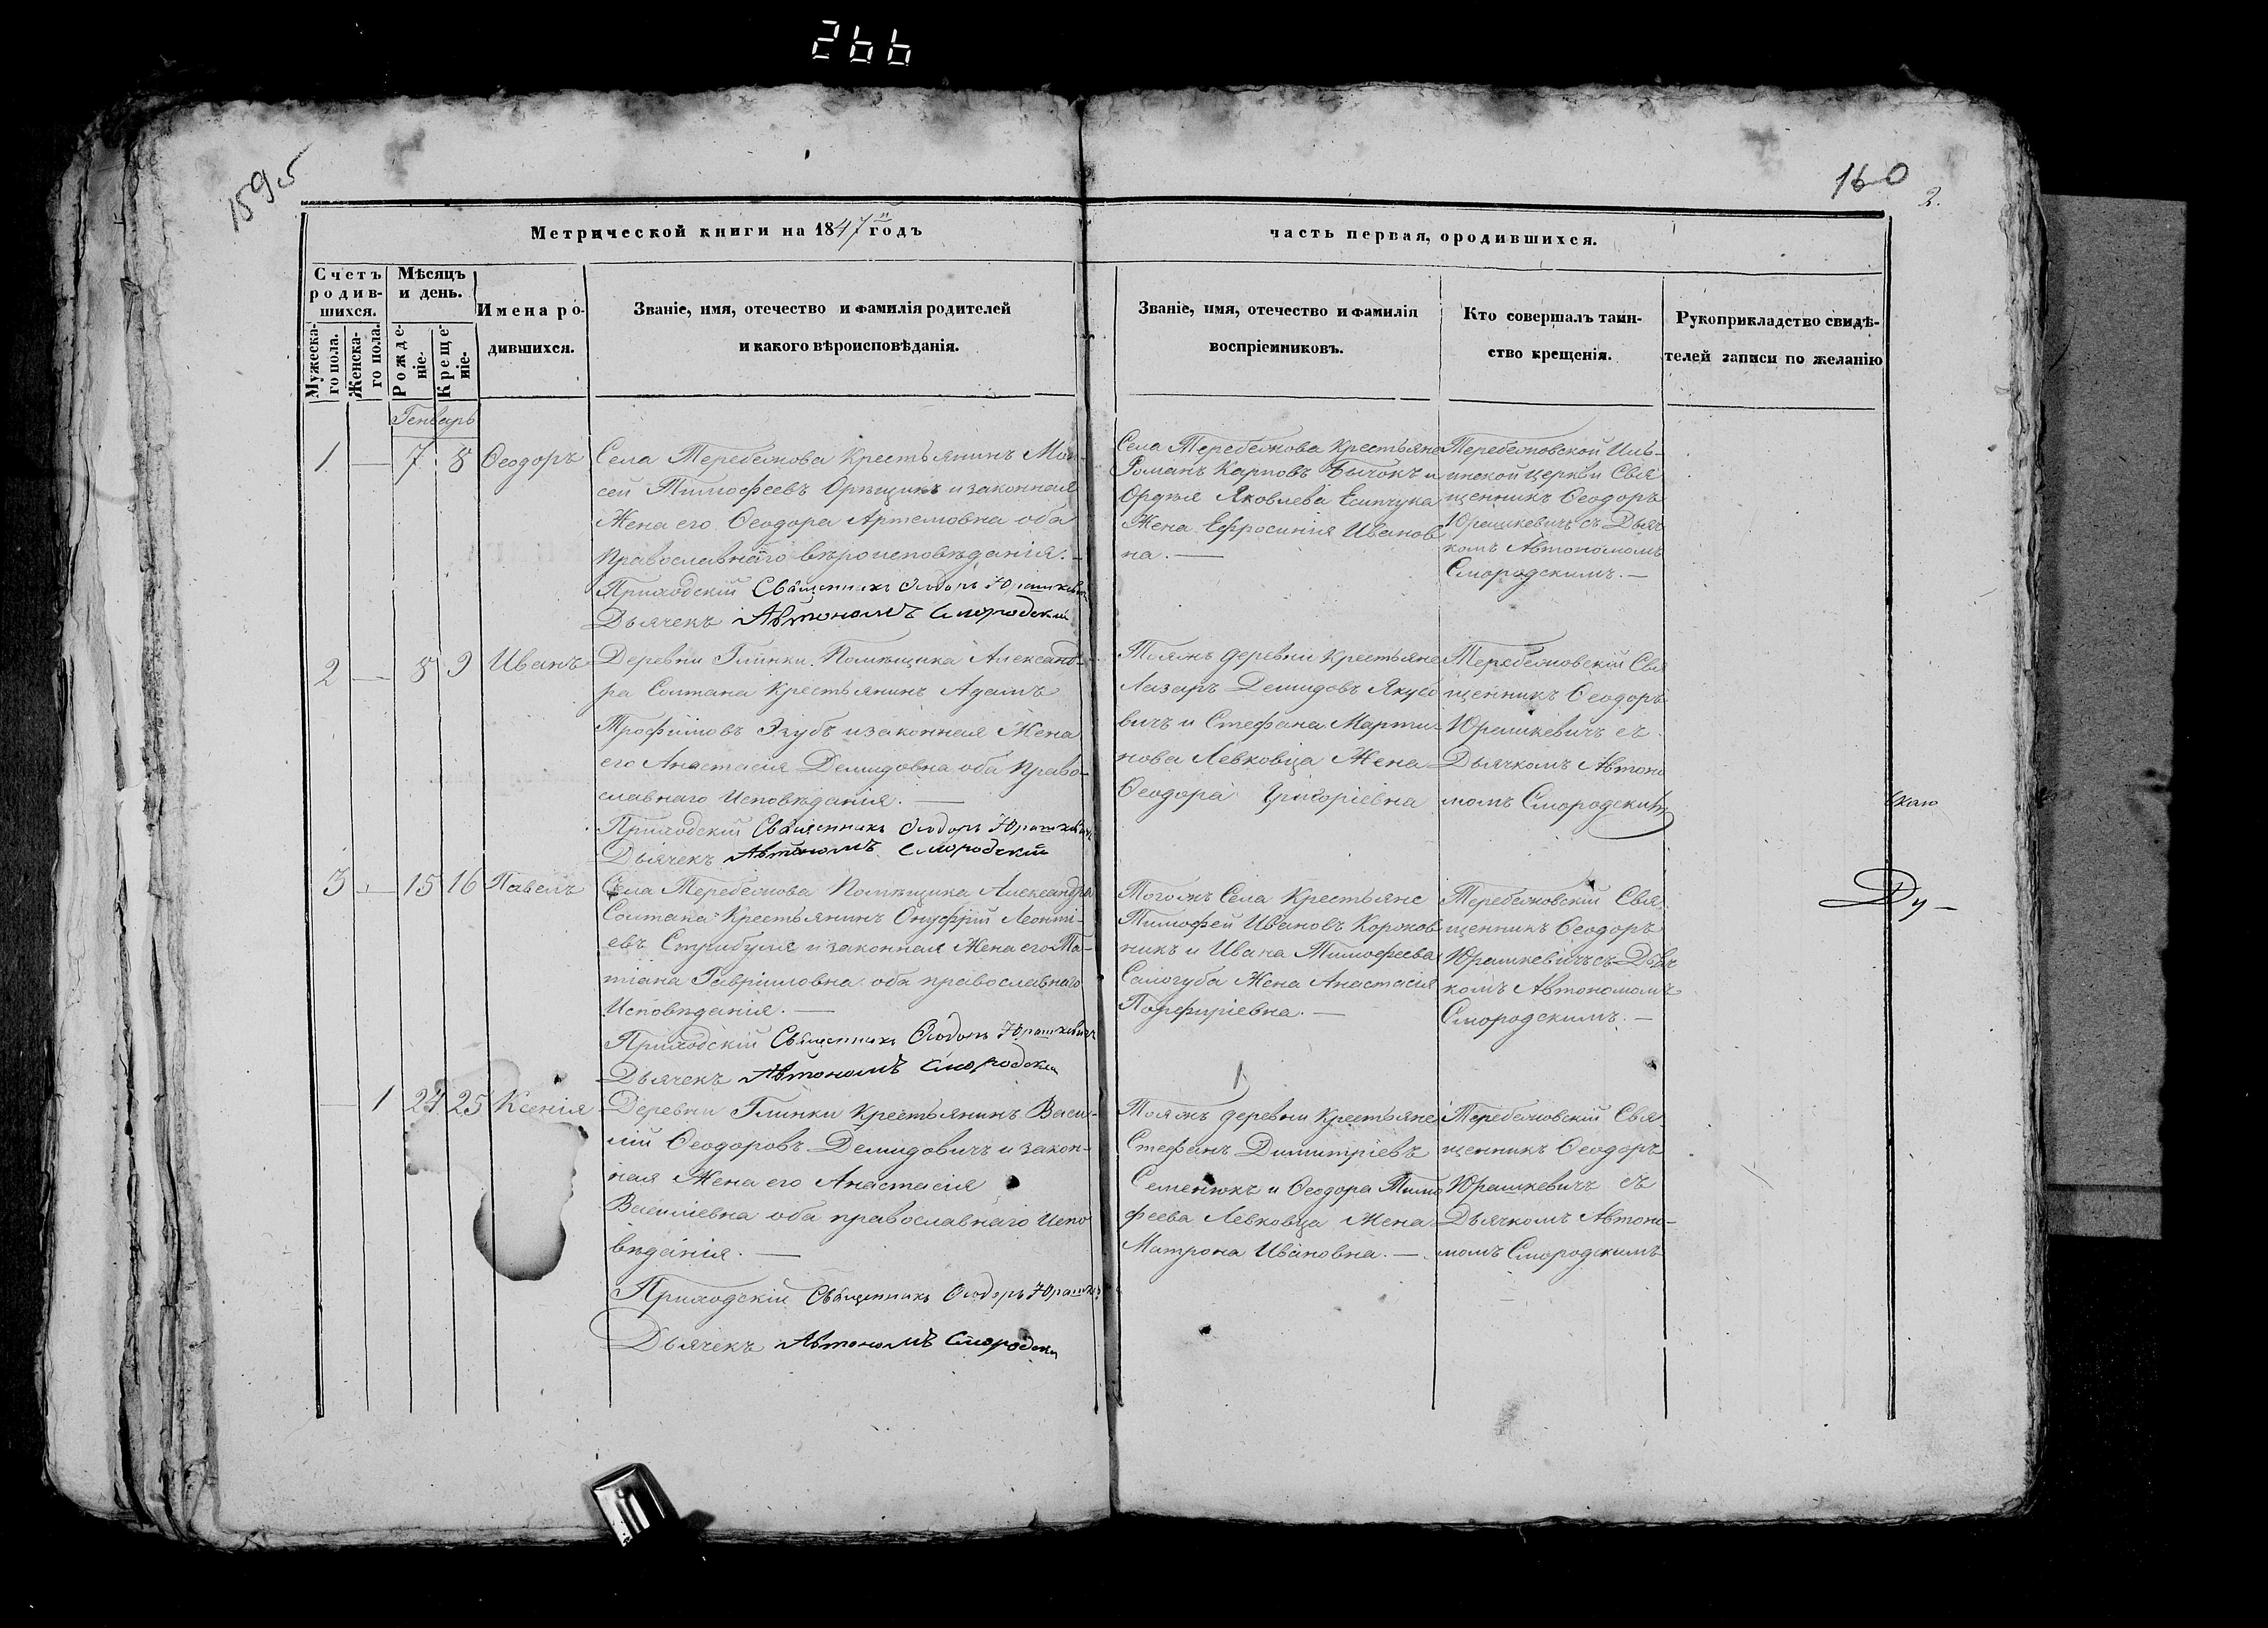 266
159 об
160
2.
Метрической книги на 1847й годъ
часть первая, о родившихся.
Счетъ родив-
шихся.
Мужеска-
го пола.
Женска-
го пола.
Мѣсяцъ
и день.
Рожде-
ніе.
Креще-
ніе.
Имена ро-
дившихся.
Званіе, имя, отечество и фамилія родителей
и какого вѣроисповѣданія.
Званіе, имя, отечество и фамилія
воспріемниковъ.
Кто совершалъ таин-
ство крещенія.
Рукоприкладство свидѣ-
телей записи по желанію
Генварь
1 — 7 8 Ѳеодоръ
Села Теребежова Крестьянинъ Мои-
сей Тимофеевъ Орѣщикъ и законная
Жена его Ѳеодора Артемовна оба
Православнаго вѣроисповѣданія. —
Приходскій Священникъ Ѳеодоръ Юрашкевичъ
Дьячекъ Автономъ Смородскій
Села Теребежова Крестьяне
Романъ Карповъ Бычокъ и
Яковлева Есипчука
Жена Ефросинія Иванов
на. —
Теребежовской Иль-
инской церкви Свя
щенникъ Ѳеодоръ
Юрашкевичъ съ Дьяч
комъ Автономомъ
Смородскимъ. —
2 — 8 9 Иванъ
Деревни Глинки Помѣщика Александ-
ра Солтана Крестьянинъ Адамъ
Трофимовъ Якубъ и законная Жена
его Анастасія Демидовна оба Право-
славнаго Исповѣданія. —
Приходскій Священникъ Ѳеодоръ Юрашкевичъ
Дьячекъ Автономъ Смородскій
Тояжъ деревни Крестьяне
Лазаръ Демидовъ Якубо
вичъ и Стефана Марти-
нова Левковца Жена
Ѳеодора Григоріевна
Теребежовскій Свя
щенникъ Ѳеодоръ
Юрашкевичъ съ
Дьячкомъ Автоно
момъ Смородскимъ
скаю
3 — 15 16 Павелъ
Села Теребежова Помѣщика Александра
Солтана Крестьянинъ Онуфрій Леонті-
евъ Стрибуля и законная Жена его Та-
тіана Гавриловна оба православнаго
Исповѣданія. —
Приходскій Священникъ Ѳеодоръ Юрашкевичъ
Дьячекъ Автономъ Смородскій
Тогожъ Села Крестьяне
Тимофей Ивановъ Коржов
никъ и Ивана Тимофеева
Самогуба Жена Анастасія
Порфиріевна. —
Теребежовскій Свя
щенникъ Ѳеодоръ
Юрашкевичъ съ Дьяч
комъ Автономомъ
Смородскимъ. —
Ду —
— 1 24 25 Ксенія
Деревни Глинки Крестьянинъ Васи-
лій Ѳеодоровъ Демидовичъ и закон-
ная Жена его Анастасія
Василіевна оба православнаго Испо
вѣданія. —
Приходскій Священникъ Ѳеодоръ Юрашкевичъ
Дьячекъ Автономъ Смородскій
Тояжъ деревни Крестьяне
Стефанъ Димитріевъ
Семенюкъ и Ѳеодора Тимо
феева Левковца Жена
Матрона Ивановна. —
Теребежовскій Свя
щенникъ Ѳеодоръ
Юрашкевичъ съ
Дьячкомъ Автоно-
момъ Смородскимъ